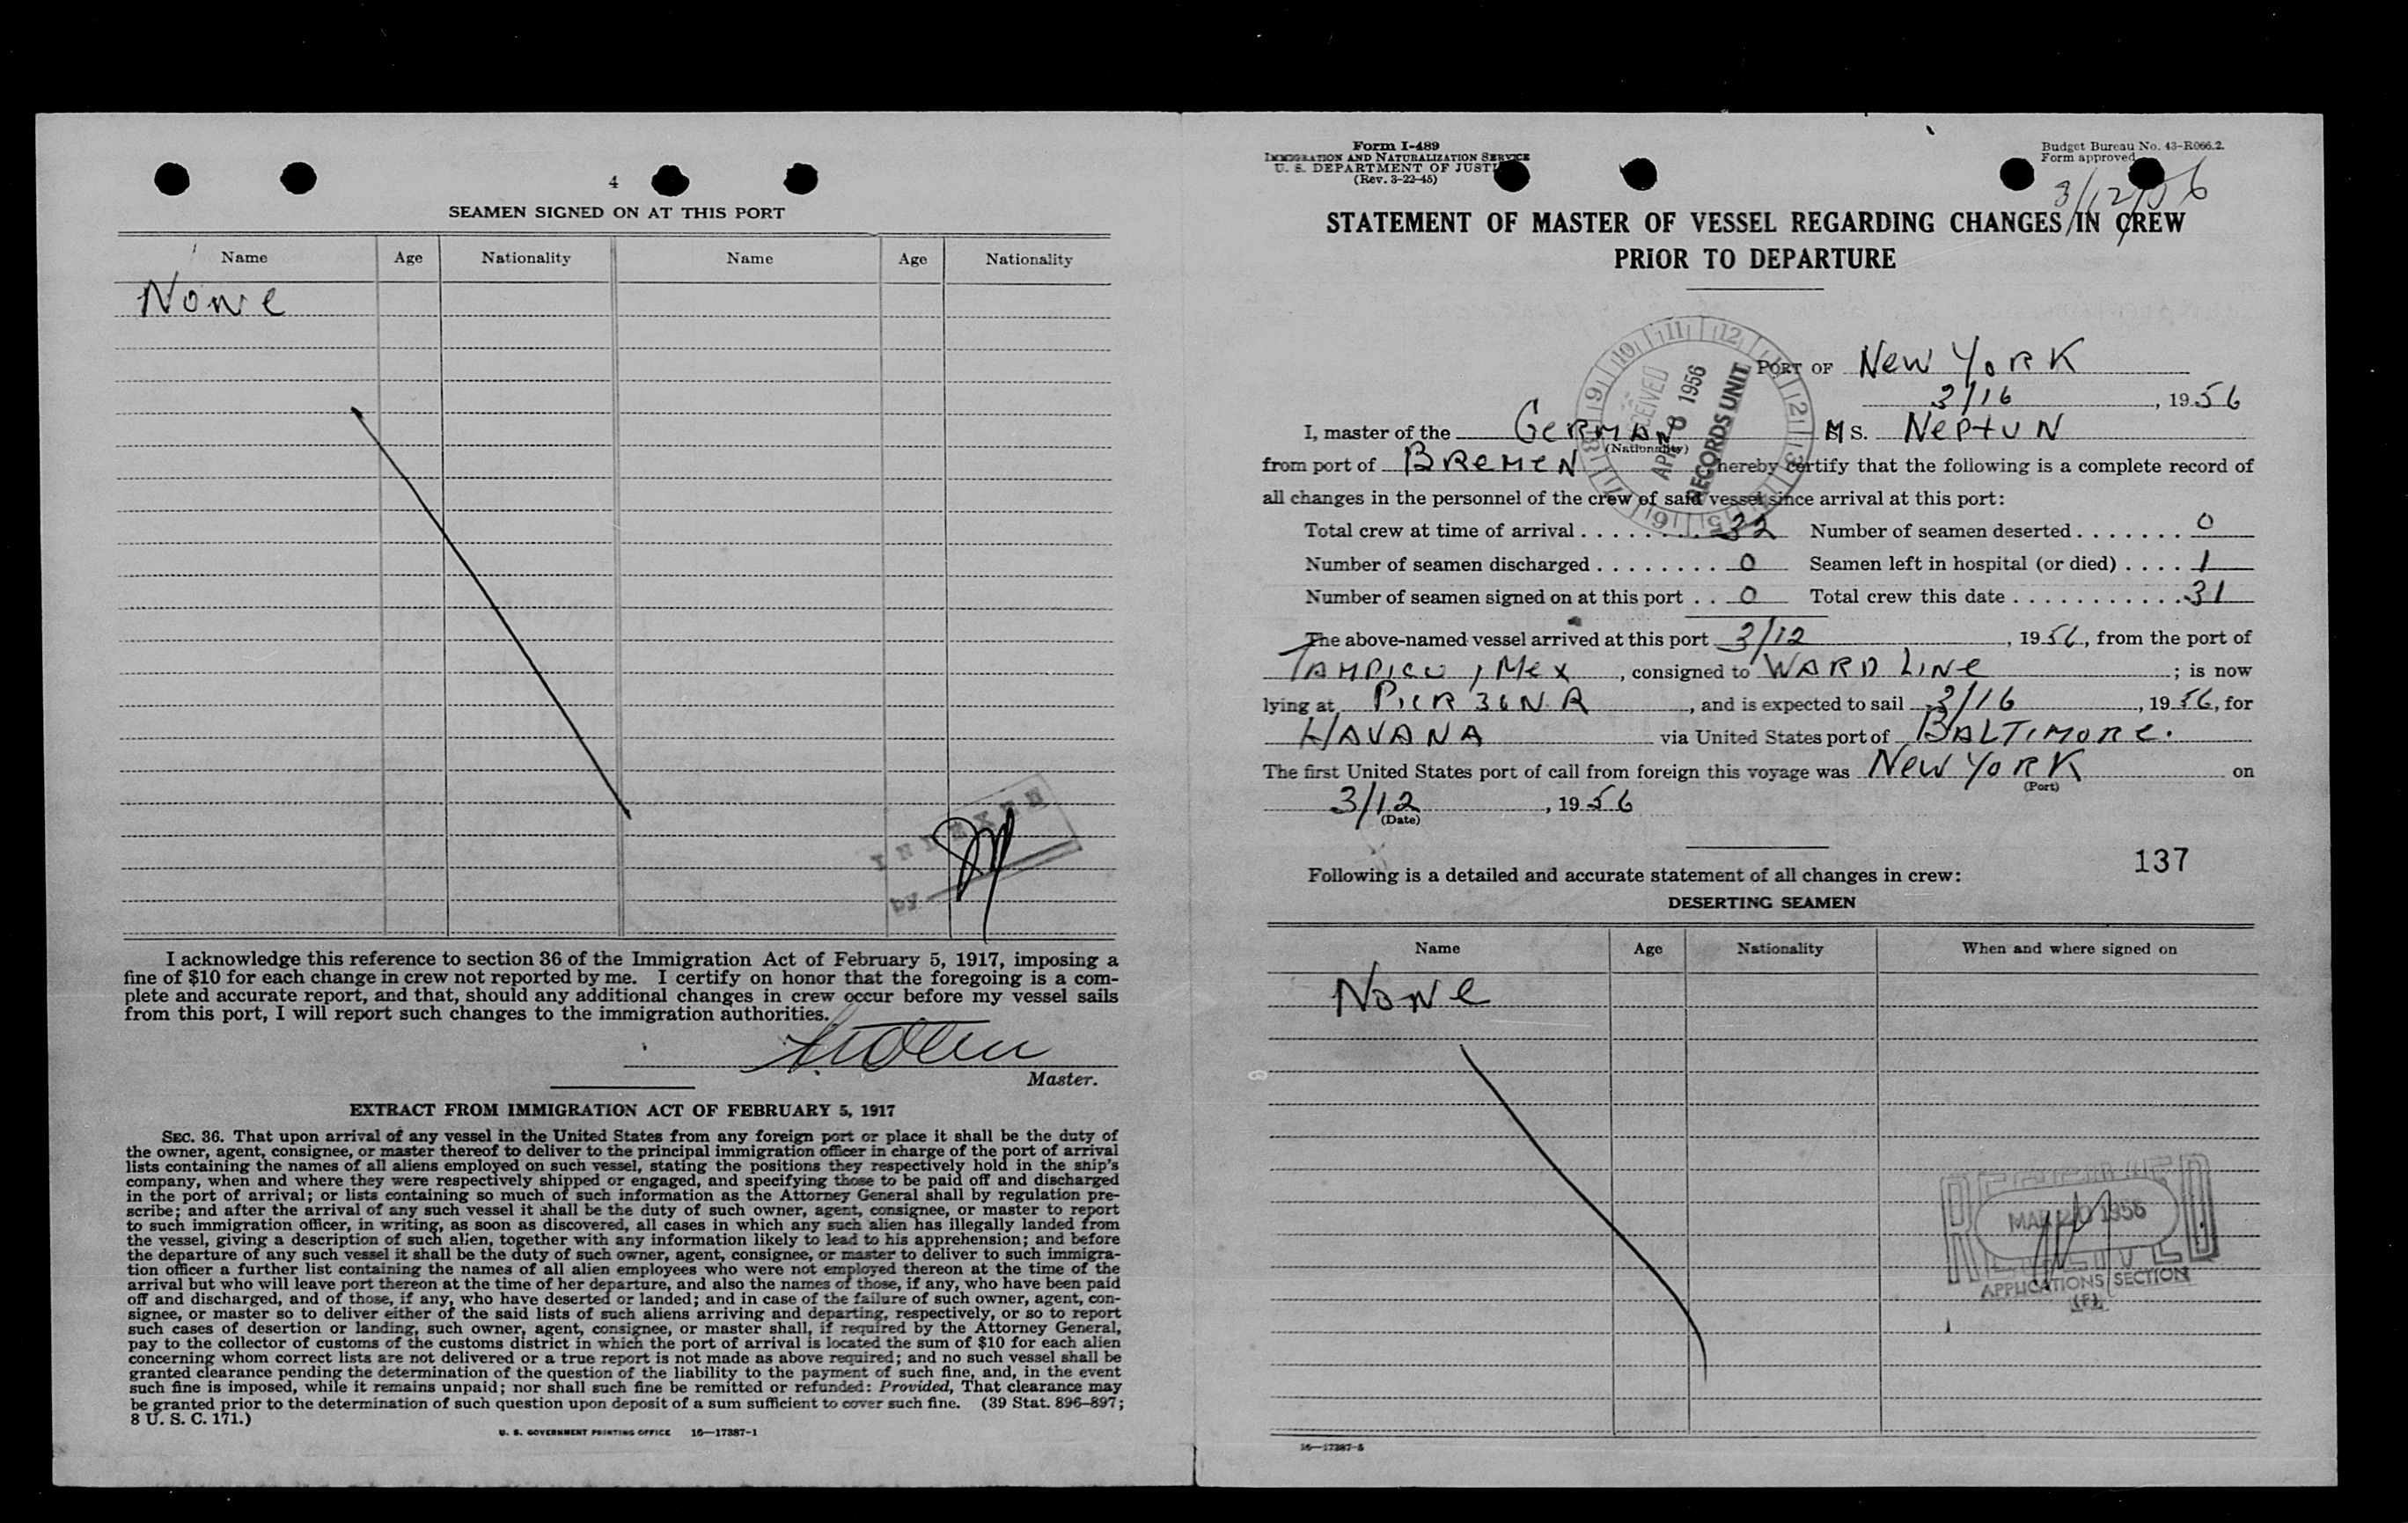 4
SEAMEN SIGNED ON AT THIS PORT
Name Age Nationality Name Age Nationality
None
INDEXED
by
I acknowledge this reference to section 36 of the Immigration Act of February 5, 1917, imposing a
fine of $10 for each change in crew not reported by me. I certify on honor that the foregoing is a com-
plete and accurate report, and that, should any additional changes in crew occur before my vessel sails
from this port, I will report such changes to the immigration authorities.
Master.
EXTRACT FROM IMMIGRATION ACT OF FEBRUARY 5, 1917
SEC. 36. That upon arrival of any vessel in the United States from any foreign port or place it shall be the duty of
the owner, agent, consignee, or master thereof to deliver to the principal immigration officer in charge of the port of arrival
lists containing the names of all aliens employed on such vessel, stating the positions they respectively hold in the ship's
company, when and where they were respectively shipped or engaged, and specifying those to be paid off and discharged
in the port of arrival; or lists containing so much of such information as the Attorney General shall by regulation pre-
scribe; and after the arrival of any such vessel it shall be the duty of such owner, agent, consignee, or master to report
to such immigration officer, in writing, as soon as discovered, all cases in which any such alien has illegally landed from
the vessel, giving a description of such alien, together with any information likely to lead to his apprehension; and before
the departure of any such vessel it shall be the duty of such owner, agent, consignee, or master to deliver to such immigra-
tion officer a further list containing the names of all alien employees who were not employed thereon at the time of the
arrival but who will leave port thereon at the time of her departure, and also the names of those, if any, who have been paid
off and discharged, and of those, if any, who have deserted or landed; and in case of the failure of such owner, agent, con-
signee, or master so to deliver either of the said lists of such aliens arriving and departing, respectively, or so to report
such cases of desertion or landing, such owner, agent, consignee, or master shall, if required by the Attorney General,
pay to the collector of customs of the customs district in which the port of arrival is located the sum of $10 for each alien
concerning whom correct lists are not delivered or a true report is not made as above required; and no such vessel shall be
granted clearance pending the determination of the question of the liability to the payment of such fine, and, in the event
such fine is imposed, while it remains unpaid; nor shall such fine be remitted or refunded: Provided, That clearance may
be granted prior to the determination of such question upon deposit of a sum sufficient to cover such fine. (39 Stat. 896–897;
8 U. S. C. 171.)
U. S. GOVERNMENT PRINTING OFFICE 16—17387-1
Form I-489
IMMIGRATION AND NATURALIZATION SERVICE
U. S. DEPARTMENT OF JUSTI
(Rev. 3-22-45)
Budget Bureau No. 43-R066.2.
Form approved
3/12/56
STATEMENT OF MASTER OF VESSEL REGARDING CHANGES IN CREW
PRIOR TO DEPARTURE
RECEIVED
APR 1956
RECORDS UNIT
PORT OF New YORK
3/16, 1956
I, master of the GERMAN MS. NeptuN
(Nationality)
from port of BREMEN hereby certify that the following is a complete record of
all changes in the personnel of the crew of said vessel since arrival at this port:
Total crew at time of arrival 32 Number of seamen deserted 0
Number of seamen discharged 0 Seamen left in hospital (or died) 1
Number of seamen signed on at this port 0 Total crew this date 31
The above-named vessel arrived at this port 3/12, 1956, from the port of
TAMPICO, Mex, consigned to WARD LINE; is now
lying at PIER 36 N.R, and is expected to sail 3/16, 1956, for
HAVANA via United States port of BALTIMORE.
The first United States port of call from foreign this voyage was New YORK on
(Port)
3/12, 1956
(Date)
137
Following is a detailed and accurate statement of all changes in crew:
DESERTING SEAMEN
Name Age Nationality When and where signed on
None
RECEIVED
MAR 20 1956
APPLICATIONS SECTION
16—17387-5